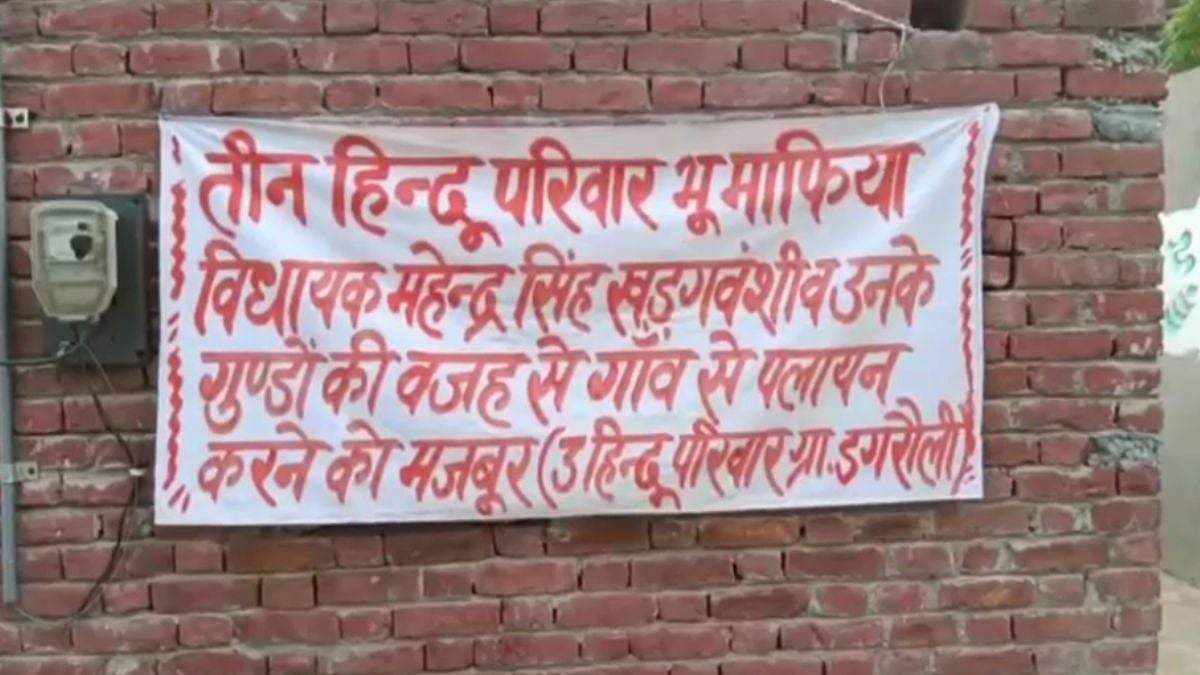 तीन हिन्दू परिवार भू माफिया
विधायक महेन्द्र सिंह खड़गवंशी व उनके
गुण्डों की वजह से गाँव से पलायन
करने को मजबूर (3 हिन्दू परिवार ग्रा. डगरौली)